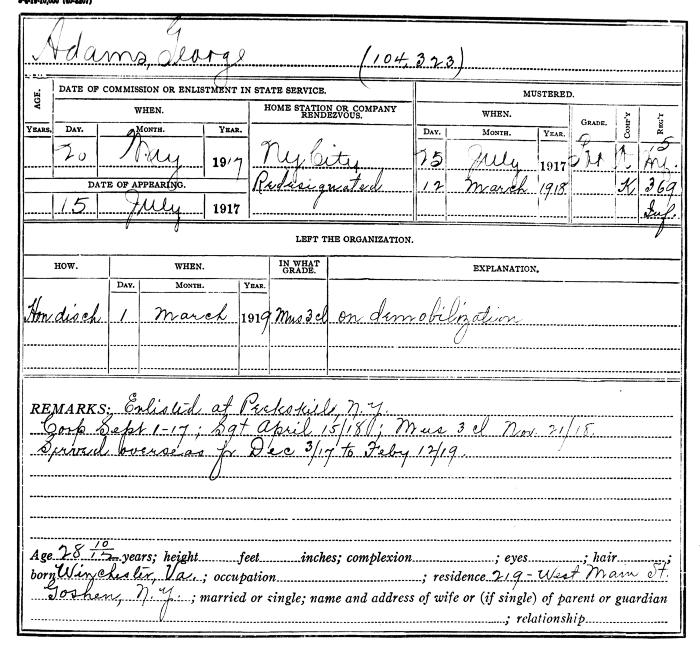 Adams, George (104,323)
AGE. DATE OF COMMISSION OR ENLISTMENT IN STATE SERVICE. MUSTERED.
WHEN. HOME STATION OR COMPANY RENDEZVOUS. WHEN. GRADE. COMP'Y REG'T
YEARS. DAY. MONTH. YEAR. DAY. MONTH. YEAR.
20 May 1917 NyCity 25 July 1917 15
DATE OF APPEARING. Redesignated 12 March 1918 K 369
15 July 1917 Inf.
LEFT THE ORGANIZATION.
HOW. WHEN. IN WHAT GRADE. EXPLANATION.
DAY. MONTH. YEAR.
Hon disch 1 March 1919 Mus 3 cl on demobilization
REMARKS: Enlisted at Peekskill, N.Y.
Corp Sept 1-17; Sgt April 15/18; Mus 3 cl Nov. 21/18.
Served overseas fr Dec 3/17 to Feby 12/19.
Age 28 10/12 years; height feet inches; complexion ; eyes ; hair ;
born Winchester, Va. ; occupation ; residence 219-West Main St.
Goshen, N.Y. ; married or single; name and address of wife or (if single) of parent or guardian
; relationship